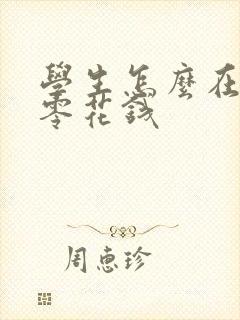 學生怎麼在
零花錢
周惠珍